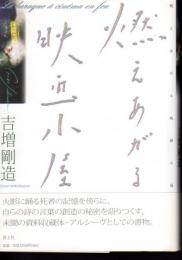 La baraque à cinéma en feu
燃えあがる
映画小屋
吉増剛造
火影に踊る死者の記憶を傍らに、
自らの詩の言葉の創造の秘密を語りつくす。
未聞の資料収蔵体=アルシーヴとしての書物。
青土社